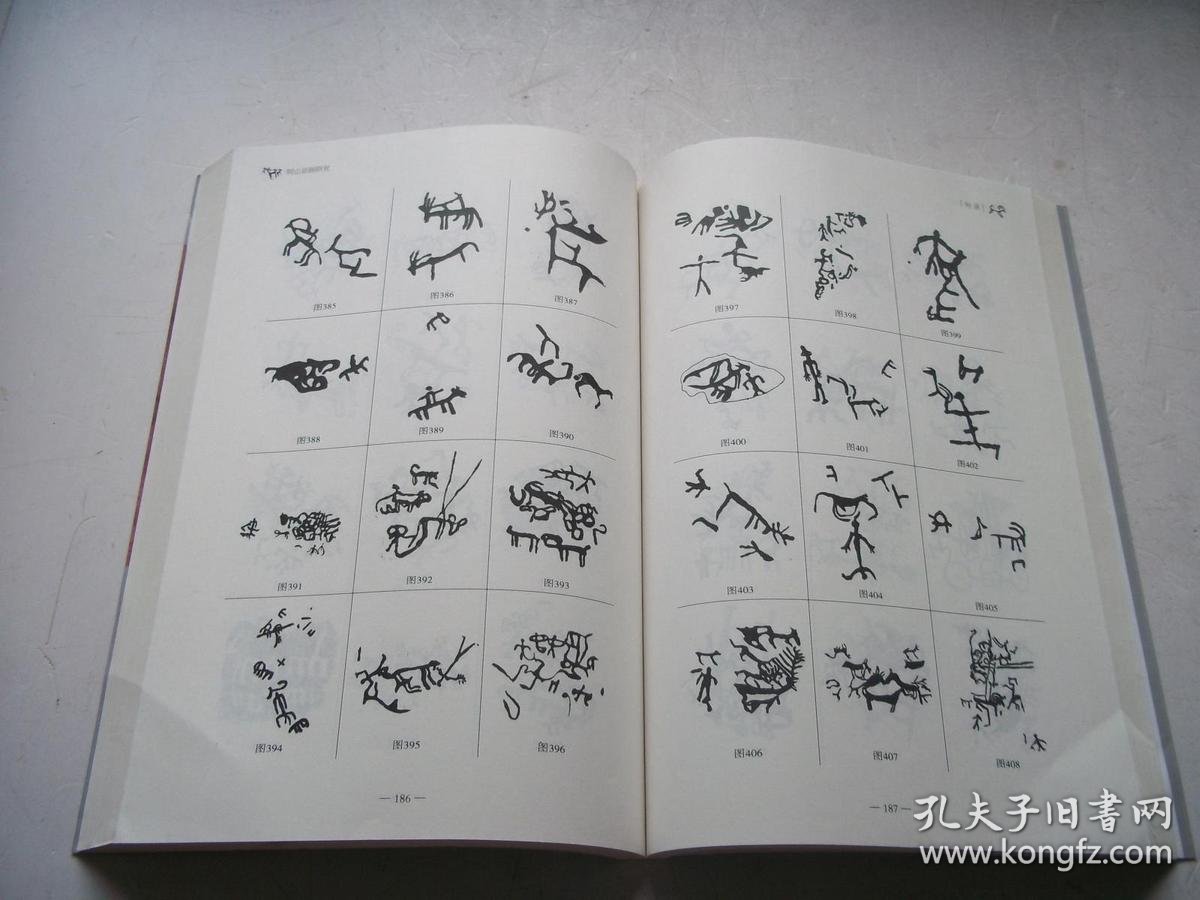 图385
图386
图387
图388
图389
图390
图391
图392
图393
图394
图395
图396
— 186 —
图397
图398
图399
图400
图401
图402
图403
图404
图405
图406
图407
图408
— 187 —
孔夫子旧书网
www.kongfz.com